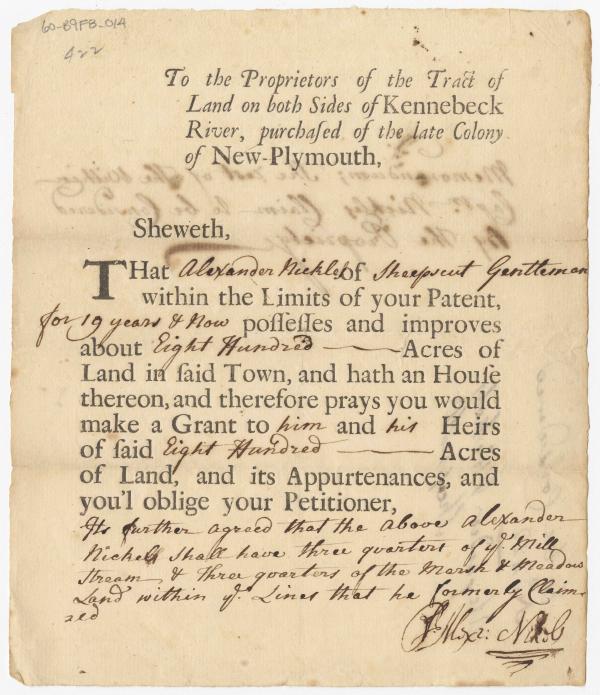 60-B9FB-014
422
To the Proprietors of the Tract of
Land on both Sides of Kennebeck
River, purchaſed of the late Colony
of New-Plymouth,
Sheweth,
THat Alexander Nickles of Sheepscut Gentleman
within the Limits of your Patent,
for 19 years & Now poſſeſſes and improves
about Eight Hundred Acres of
Land in ſaid Town, and hath an Houſe
thereon, and therefore prays you would
make a Grant to him and his Heirs
of ſaid Eight Hundred Acres
of Land, and its Appurtenances, and
you'l oblige your Petitioner,
Its further agreed that the above Alexander
Nickels shall have three quarters of ye. Mill
Stream & three quarters of the Marsh & Meadow
Land within ye. Lines that he formerly Claim-
ed
Alexr: Nikels